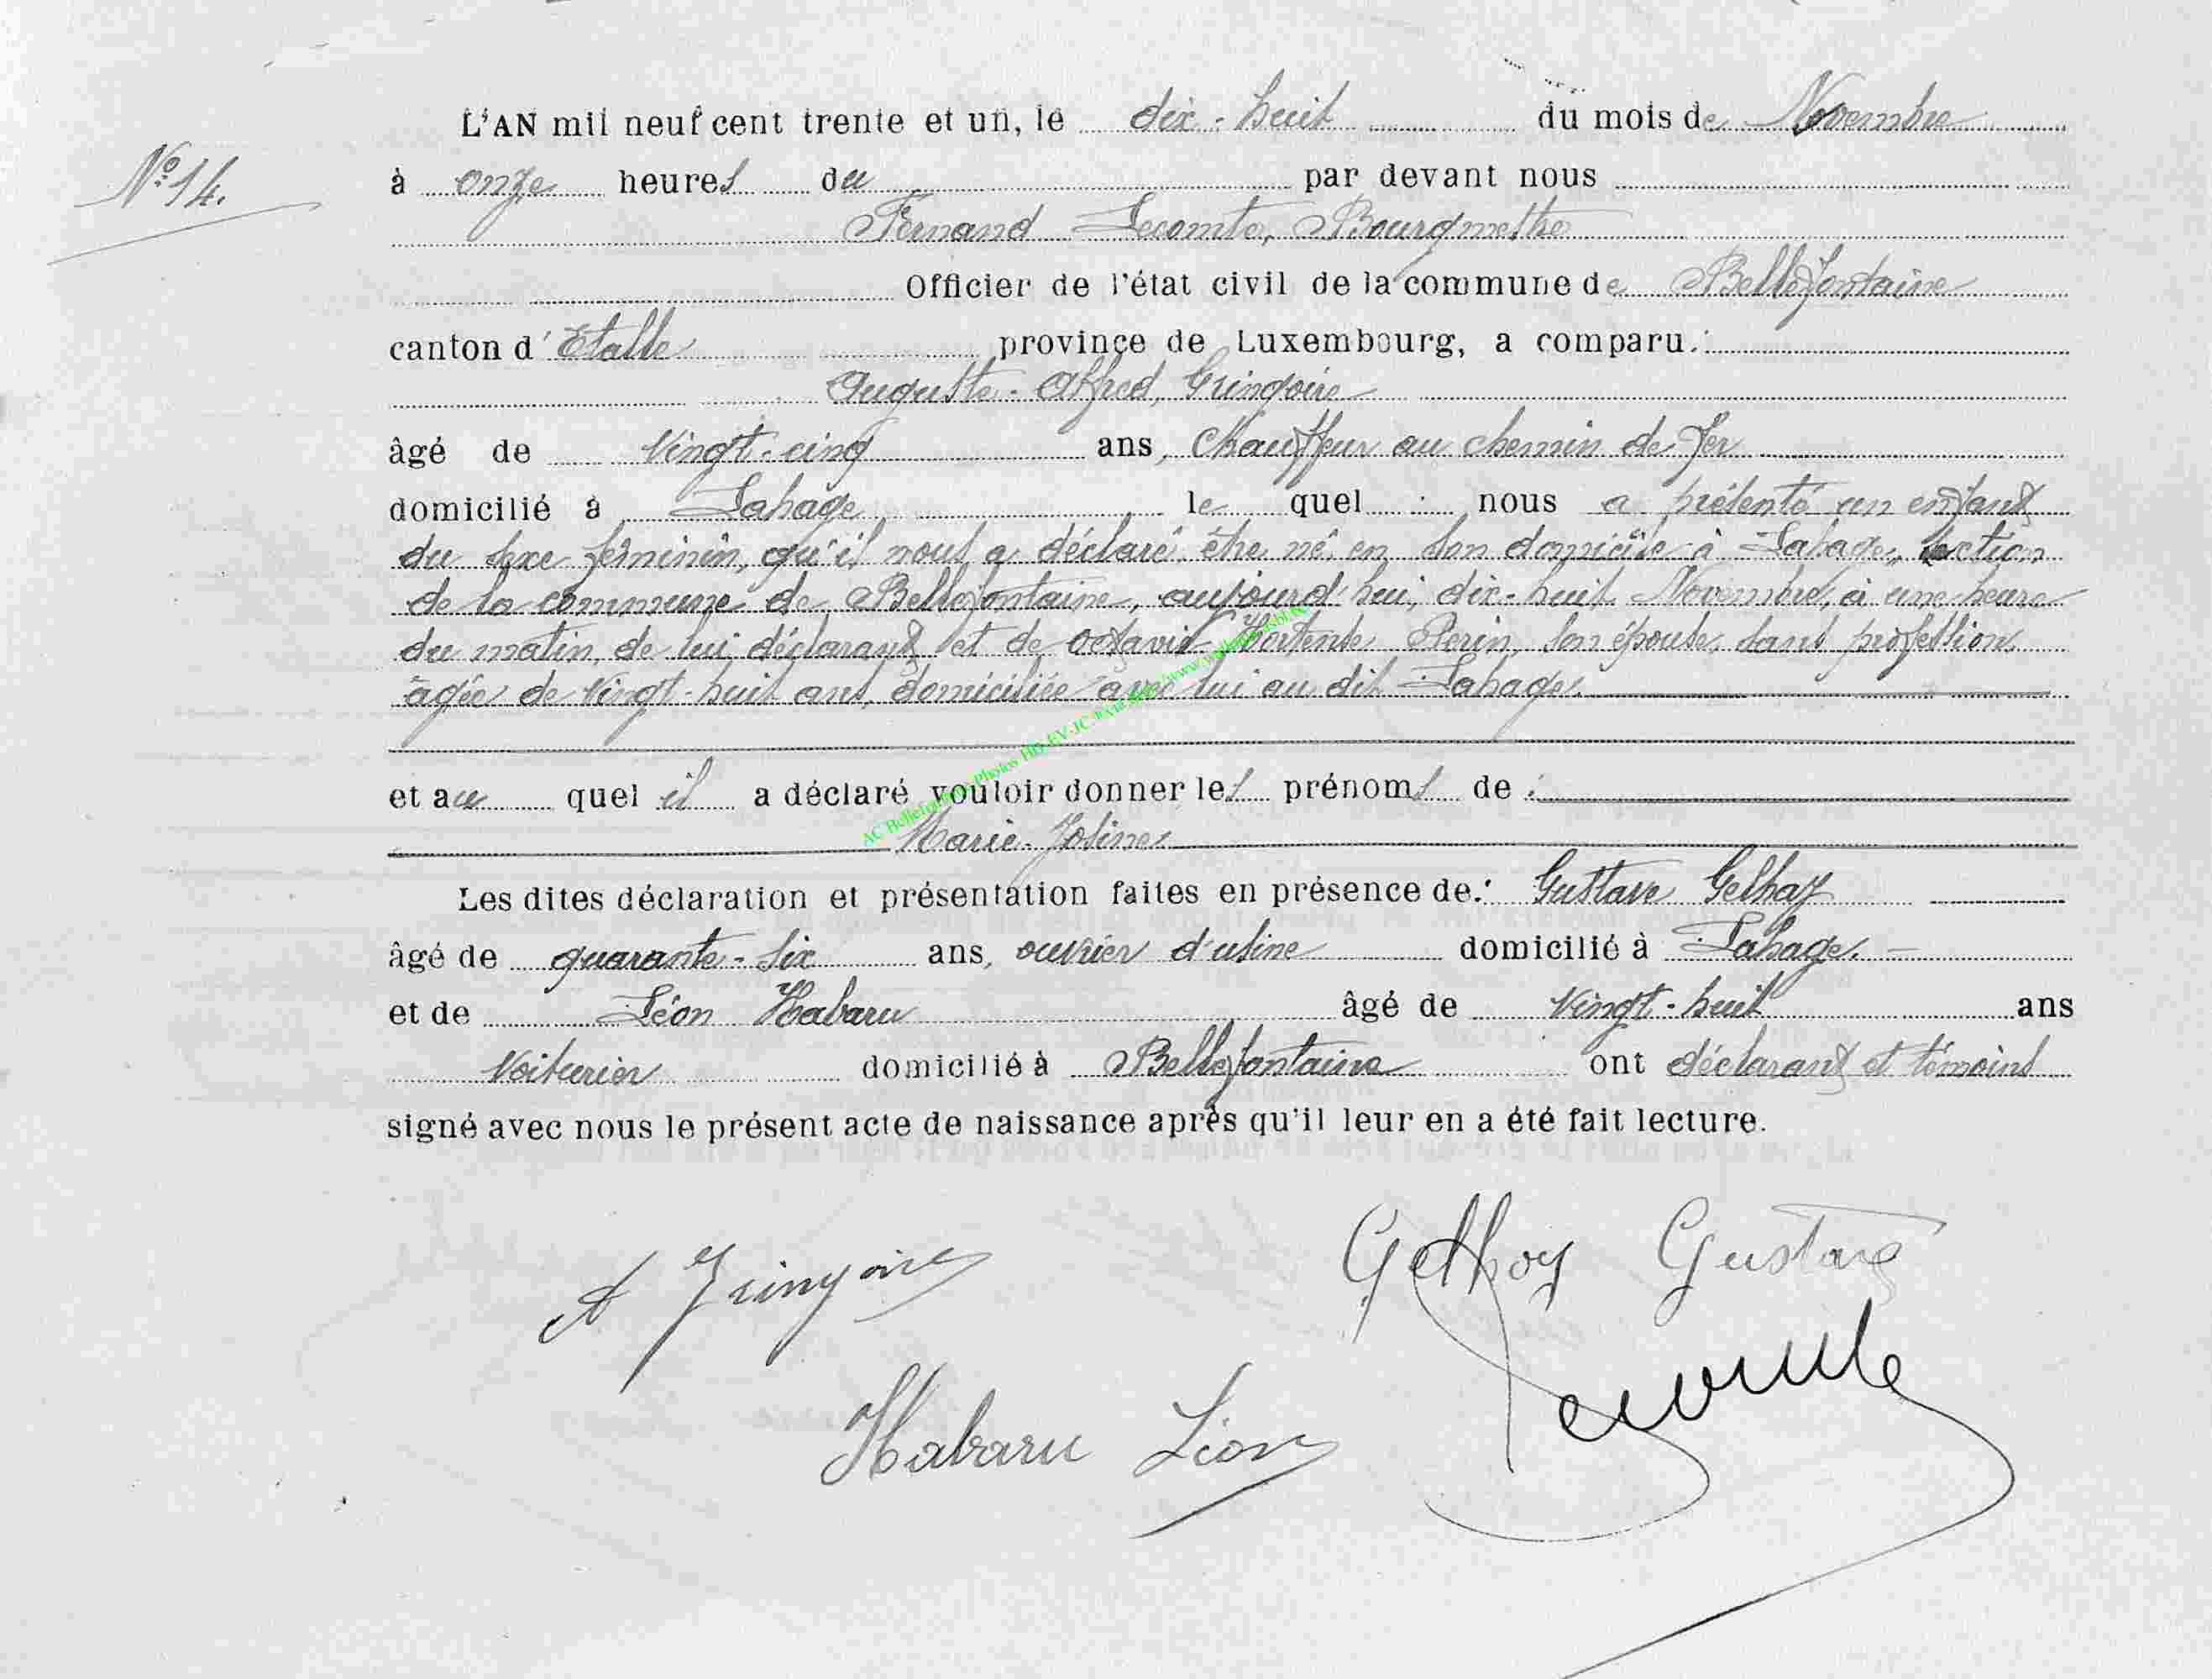 L'AN mil neuf cent trente et un, le dix-huit du mois de Novembre
N° 14.
à onze heures du par devant nous
Fernand Lecomte, Bourgmestre
Officier de l'état civil de la commune de Bellefontaine
canton d'Etalle province de Luxembourg, a comparu :
Auguste-Alfred, Gringoire
âgé de vingt-cinq ans, Chauffeur au chemin de fer
domicilié à Lahage lequel nous a présenté un enfant
du sexe féminin, qu'il nous a déclaré être né en son domicile à Lahage, section
de la commune de Bellefontaine, aujourd'hui, dix-huit Novembre, à une heure
du matin, de lui déclarant et de Octavie Hortense Perin, son épouse, sans profession
âgée de vingt-huit ans, domiciliée avec lui au dit Lahage.
et au quel il a déclaré vouloir donner les prénoms de :
Marie-Josine
Les dites déclaration et présentation faites en présence de : Gustave Gelhay
âgé de quarante-six ans, ouvrier d'usine domicilié à Lahage.
et de Léon Habaru âgé de vingt-huit ans
Voiturier domicilié à Bellefontaine ont déclarant et témoins
signé avec nous le présent acte de naissance après qu'il leur en a été fait lecture.
Gelhay Gustave
A Gringoire
Lecomte
Habaru Léon
AC Bellefontaine Photos